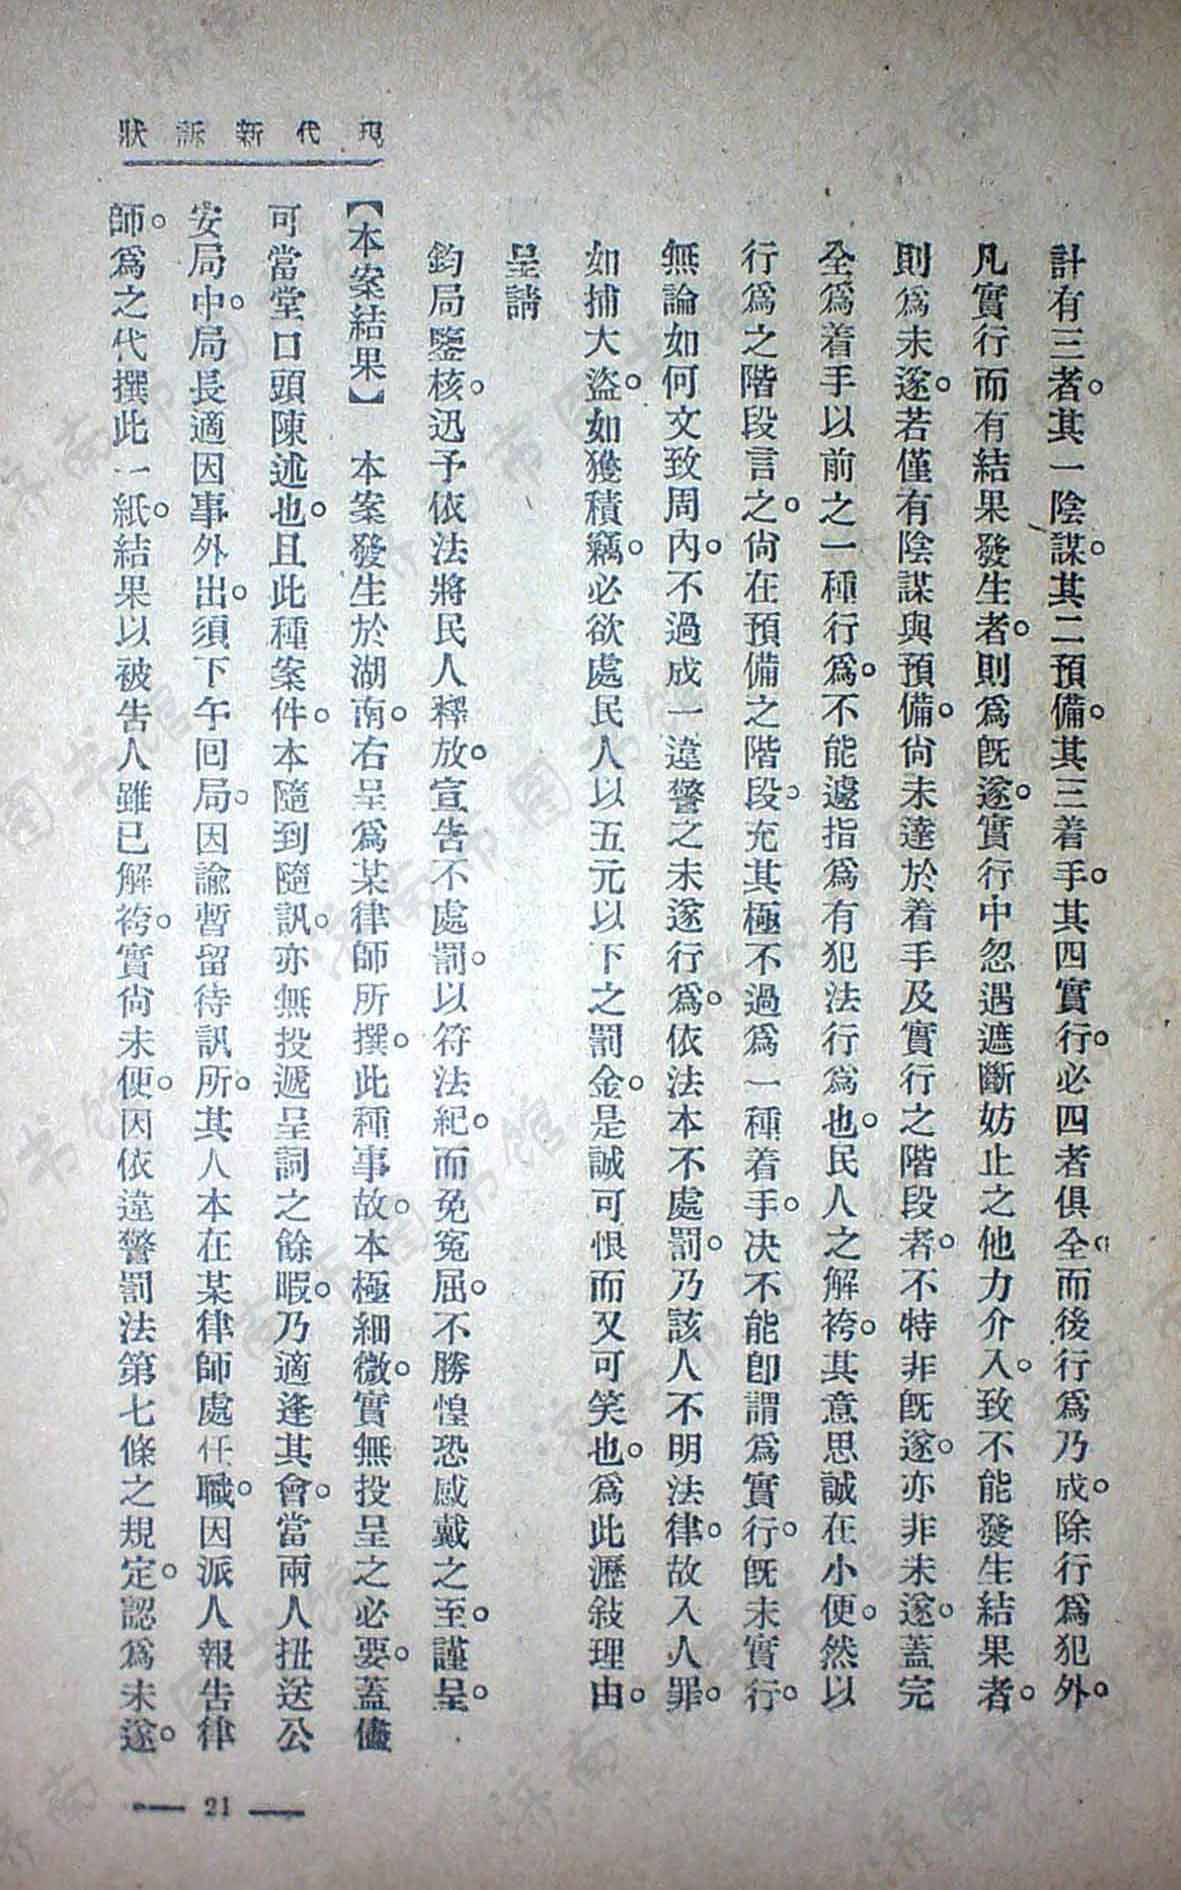 現代新訴狀
計有三者。其一陰謀。其二預備。其三着手。其四實行。必四者俱全。而後行爲乃成。除行爲犯外。
凡實行而有結果發生者。則爲旣遂。實行中忽遇遮斷妨止之他力介入。致不能發生結果者。
則爲未遂。若僅有陰謀與預備。尙未達於着手及實行之階段者。不特非旣遂。亦非未遂。蓋完
全爲着手以前之一種行爲。不能遽指爲有犯法行爲也。民人之解袴。其意思誠在小便。然以
行爲之階段言之。尙在預備之階段。充其極不過爲一種着手。决不能卽謂爲實行。旣未實行。
無論如何文致周內。不過成一違警之未遂行爲。依法本不處罰。乃該人不明法律。故入人罪。
如捕大盜。如獲積竊。必欲處民人以五元以下之罰金。是誠可恨而又可笑也。爲此瀝敍理由。
呈請
鈞局鑒核。迅予依法將民人釋放。宣告不處罰。以符法紀。而免冤屈。不勝惶恐感戴之至。謹呈。
【本案結果】　本案發生於湖南。右呈爲某律師所撰。此種事故。本極細微。實無投呈之必要。蓋儘
可當堂口頭陳述也。且此種案件。本隨到隨訊。亦無投遞呈詞之餘暇。乃適逢其會。當兩人扭送公
安局中。局長適因事外出。須下午回局。因諭暫留待訊所。其人本在某律師處任職。因派人報告律
師。爲之代撰此一紙。結果以被告人雖已解袴。實尙未便。因依違警罰法第七條之規定。認爲未遂。
— 21 —
馆
济南市图书馆